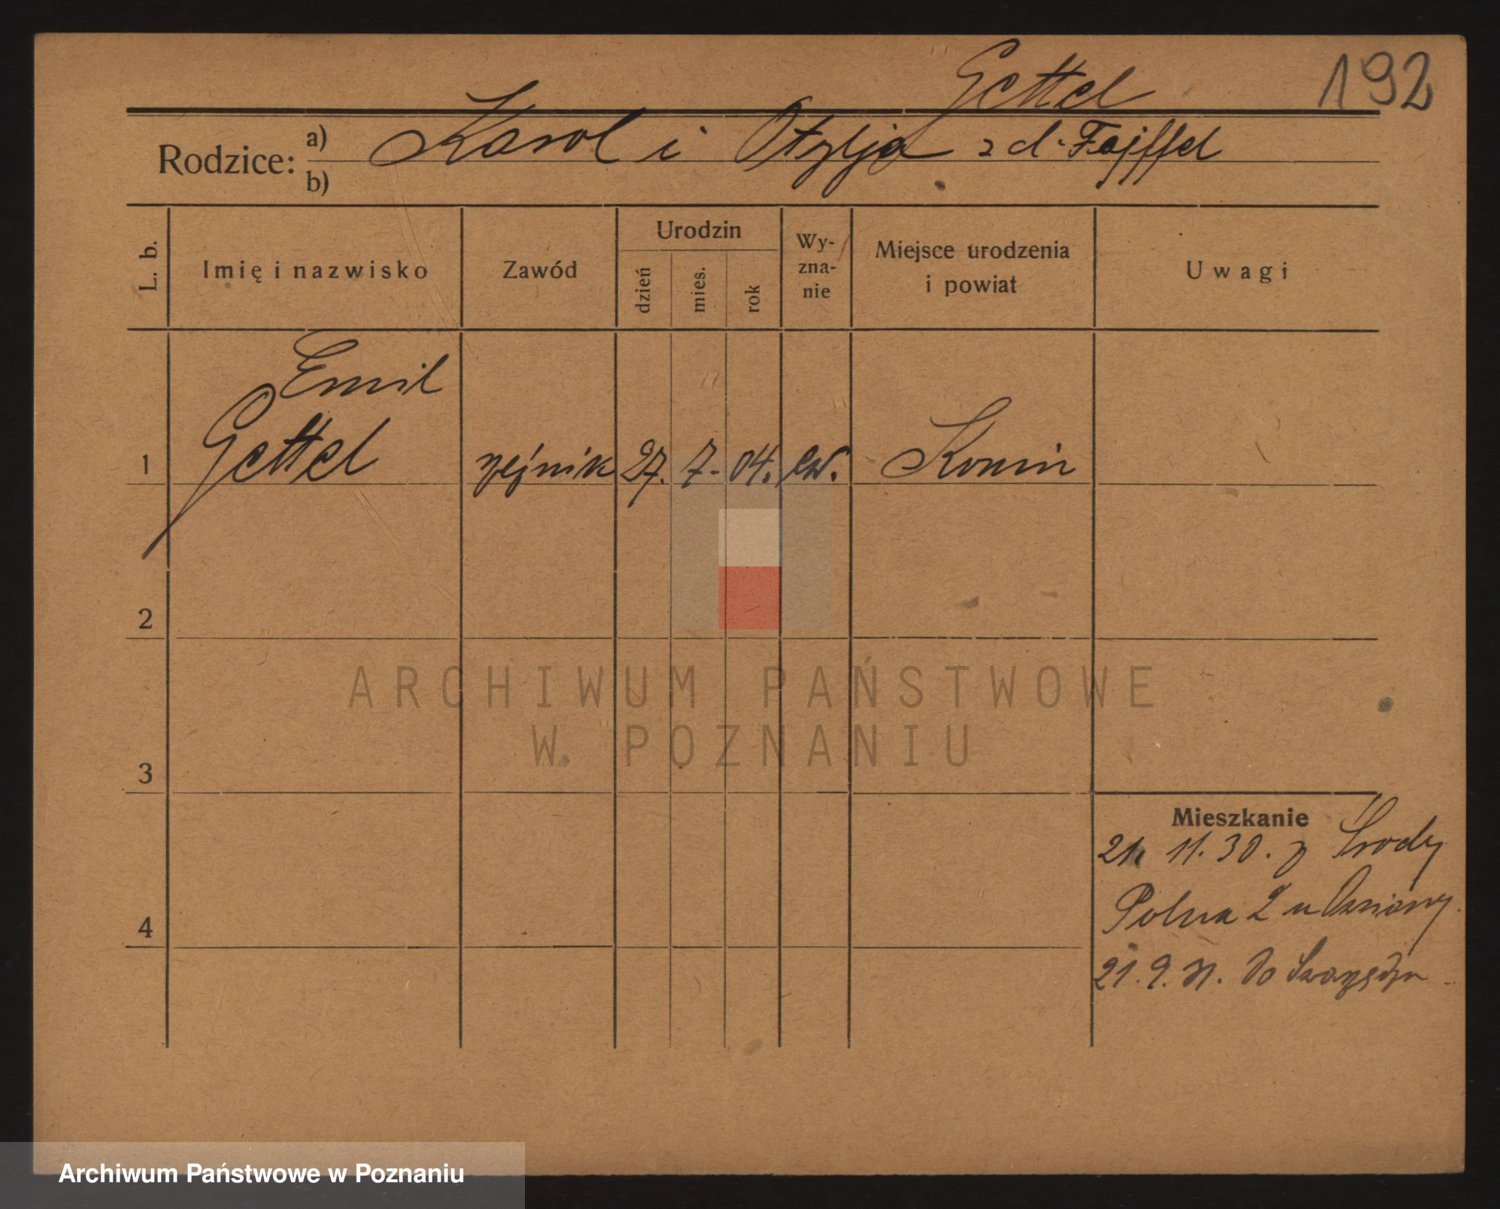 Gettel 192
Rodzice: a) Karol i Otylja z d. Fajffel
b)
L. b. Imię i nazwisko Zawód Urodzin dzień mies. rok Wy-zna-nie Miejsce urodzenia i powiat Uwagi
Emil
1 Gettel 27. 7. 04. ew. Konin
2
ARCHIWUM PAŃSTWOWE
W POZNANIU
3
Mieszkanie
21. 11. 30. z Środy
4 Polna 2 u
21. 9. 31. do
Archiwum Państwowe w Poznaniu